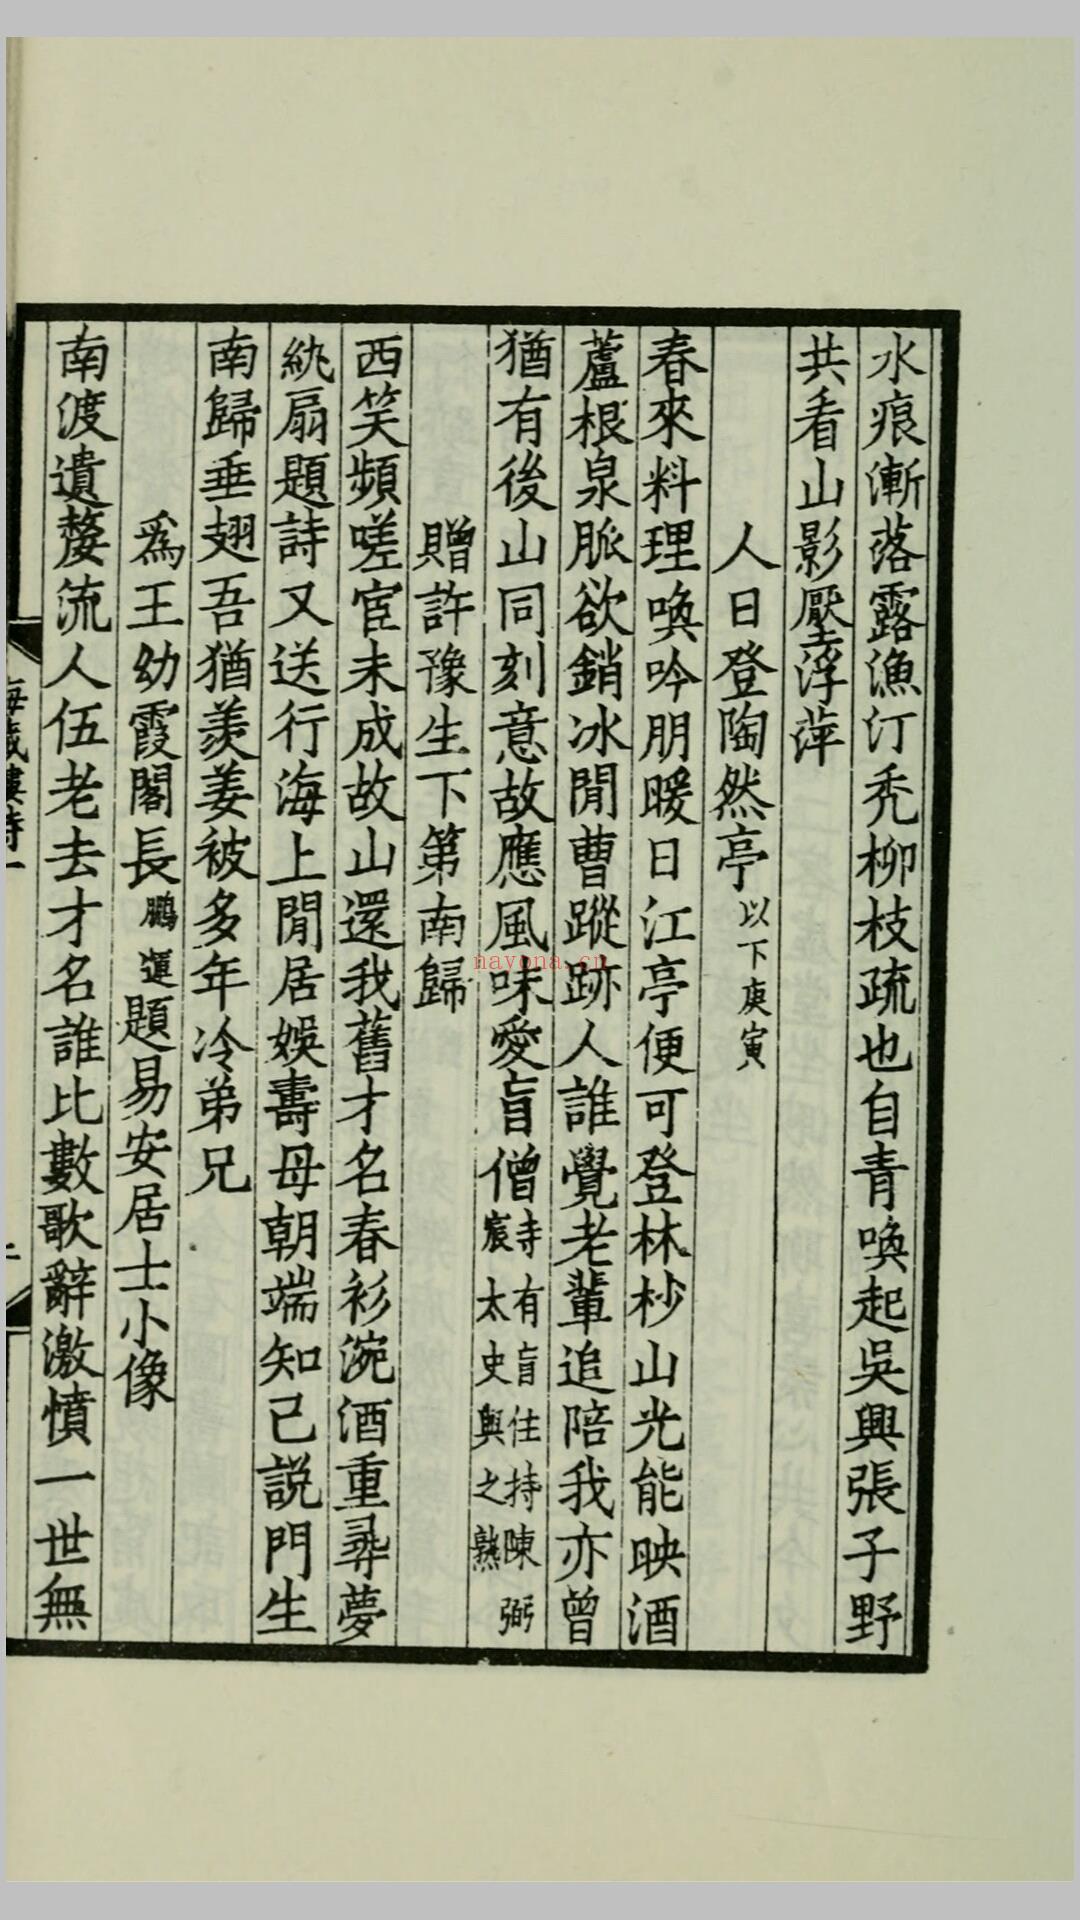 水痕漸落露漁汀禿柳枝疏也自青喚起吳興張子野
共看山影壓浮萍
人日登陶然亭以下庚寅
春來料理喚吟朋暖日江亭便可登林杪山光能映酒
蘆根泉脈欲銷冰閒曹蹤跡人誰覺老輩追陪我亦曾
猶有後山同刻意故應風味愛盲僧寺有盲住持陳弼宸太史與之熟
贈許豫生下第南歸
西笑頻嗟宦未成故山還我舊才名春衫涴酒重尋夢
紈扇題詩又送行海上閒居娛壽母朝端知己說門生
南歸垂翅吾猶羨姜被多年冷弟兄
爲王幼霞閣長鵬運題易安居士小像
南渡遺嫠流人伍老去才名誰比數歌辭激憤一世無
海藏樓詩一
nayona.cn